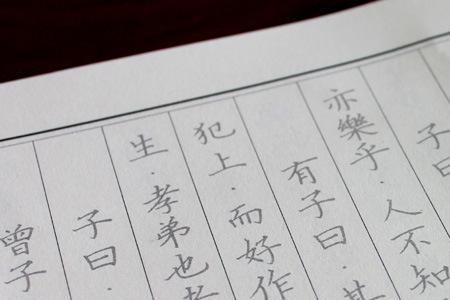 子曰
亦樂乎．人不知
有子曰．其
犯上．而好作
生．孝弟也者
子曰．
曾子